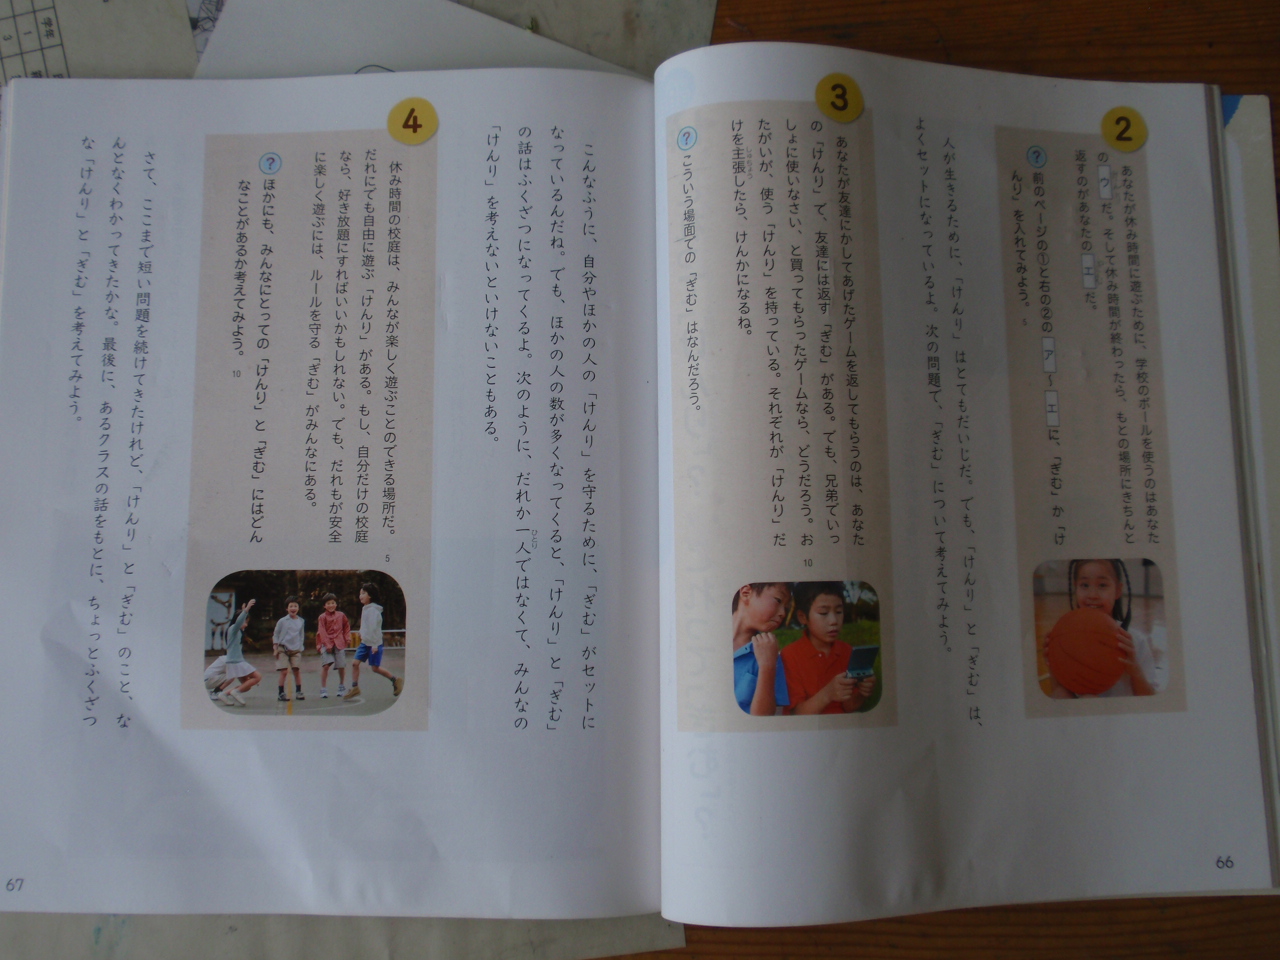 2
あなたが休み時間に遊ぶために、学校のボールを使うのはあなた
の ウ だ。そして休み時間が終わったら、もとの場所にきちんと
返すのがあなたの エ だ。
? 前のページの①と右の②の ア ～ エ に、「ぎむ」か「け
んり」を入れてみよう。
5
人が生きるために、「けんり」はとてもだいじだ。でも、「けんり」と「ぎむ」は、
よくセットになっているよ。次の問題で、「ぎむ」について考えてみよう。
3
あなたが友達にかしてあげたゲームを返してもらうのは、あなた
の「けんり」で、友達には返す「ぎむ」がある。でも、兄弟でいっ
しょに使いなさい、と買ってもらったゲームなら、どうだろう。お
たがいが、使う「けんり」を持っている。それぞれが「けんり」だ
けを主張したら、けんかになるね。
しゅちょう
10
? こういう場面での「ぎむ」はなんだろう。
66
こんなふうに、自分やほかの人の「けんり」を守るために、「ぎむ」がセットに
なっているんだね。でも、ほかの人の数が多くなってくると、「けんり」と「ぎむ」
の話はふくざつになってくるよ。次のように、だれか一人ではなくて、みんなの
ひとり
「けんり」を考えないといけないこともある。
4
休み時間の校庭は、みんなが楽しく遊ぶことのできる場所だ。
5
だれにでも自由に遊ぶ「けんり」がある。もし、自分だけの校庭
なら、好き放題にすればいいかもしれない。でも、だれもが安全
に楽しく遊ぶには、ルールを守る「ぎむ」がみんなにある。
? ほかにも、みんなにとっての「けんり」と「ぎむ」にはどん
なことがあるか考えてみよう。
10
さて、ここまで短い問題を続けてきたけれど、「けんり」と「ぎむ」のこと、な
んとなくわかってきたかな。最後に、あるクラスの話をもとに、ちょっとふくざつ
な「けんり」と「ぎむ」を考えてみよう。
67
学校
1
3